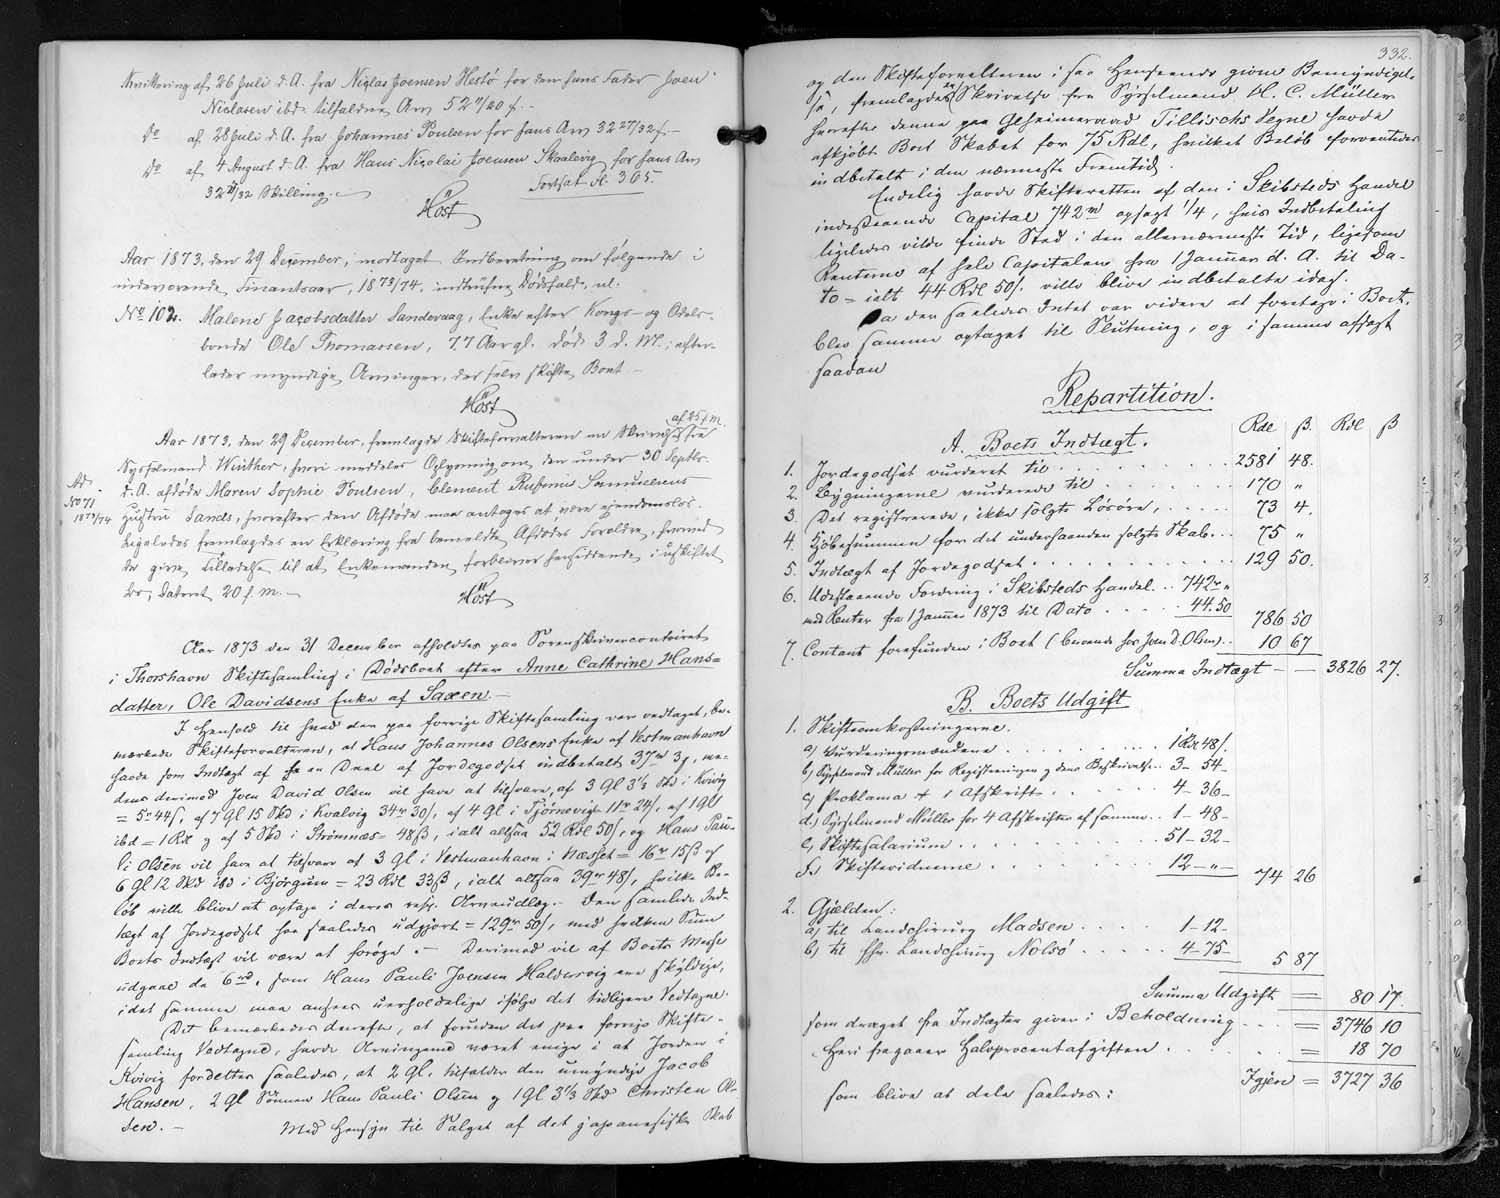 Kvittering af 26 Juli d. A. fra Niclas Joensen Hestø for den hans Fader Joen
Niclasen ibd. tilfaldne Arv 52 11/20 f. -
Do af 28 Juli d. A. fra Johannes Poulsen for hans Arv 32 27/32 f. -
Do af 4 August d. A. fra Hans Nicolai Joensen Skaalevig for hans Arv
32 27/32 Skilling. -
Fortsat fl. 365.
Høst
Aar 1873, den 29 December, modtaget Indberetning om følgende i
indeværende Finantsaar, 1873/74, indtrufne Dødsfald, nl.
No 102. Malene Jacobsdatter Sandevaag, Enke efter Kongs- og Odels-
bonde Ole Thomassen, 77 Aar gl. død 3 d. M.; efter-
lader myndige Arvinger, der selv skifte Boet -
Høst
af 25 f. M.
Aar 1873, den 29 December, fremlagde Skifteforvalteren en Skrivelse fra
Sysselmand Winther, hvori meddeles Oplysning om den under 30 Septbr.
Ad
No 71
1873/74
d. A. afdøde Maren Sophie Poulsen, Clement Rufinus Samuelsens
Hustru Sands, hvorefter den Afdøde maa antages at være ejendomsløs.
Ligeledes fremlagdes en Erklæring fra bemeldte Afdødes Forældre, hvorved
de give Tilladelse til at Enkemanden forbliver hensiddende i uskiftet
Bo, dateret 20 f. m. -
Høst
Aar 1873 den 31 December afholdtes paa Sorenskrivercontoiret
i Thorshavn Skiftesamling i Dødsboet efter Anne Cathrine Hans=
datter, Ole Davidsens Enke af Saxen. -
I Henhold til hvad der paa forrige Skiftesamling var vedtaget, be-
mærkede Skifteforvalteren, at Hans Johannes Olsens Enke af Vestmanhavn
havde som Indtægt af en Deel af Jordegodset indbetalt 37 rd 3 ſ, me-
dens derimod Joen David Olsen vil have at tilsvare, af 3 Gl 3 1/3 Skd i Kvivig
= 5 rd 44 ſ, af 7 Gl 15 Skd i Kvalvig 34 rd 30 ſ, af 4 Gl i Tjørnevig 11 rd 24 ſ, af 1 Gl
ibd = 1 Rd og af 5 Skd i Strømnæs = 48 ß, ialt altsaa 52 Rdl 50 ſ, og Hans Pau-
li Olsen vil have at tilsvare af 3 Gl i Vestmanhavn i Næsset = 16 rd 15 ß af
6 Gl 12 Skd ibd i Bjørgum = 23 Rdl 33 ß, ialt altsaa 39 rd 48 ſ, hvilke Be-
løb ville blive at optage i deres resp. Arveudlæg. - Den samlede Ind-
tægt af Jordegodset har saaledes udgjort = 129 rd 50 ſ, med hvilken Sum
Boets Indtægt vil være at forøge. - Derimod vil af Boets Masse
udgaae de 6 rd, som Hans Pauli Joensen Haldersvig var skyldige,
idet samme maa ansees uerholdelige ifølge det tidligere Vedtagne.
Det bemærkedes derefter, at foruden det paa forrige Skifte-
samling Vedtagne, havde Arvingerne været enige i at Jorden i
Kvivig fordeltes saaledes, at 2 Gl. tilfalder den umyndige Jacob
Hansen, 2 Gl Sønnen Hans Pauli Olsen og 1 Gl 3 1/3 Skd Christen Ol-
sen. - Med Hensyn til Salget af det japanesiske Skab
332.
og den Skifteforvalteren i saa Henseende givne Bemyndigel-
se, fremlagdes en Skrivelse fra Sysselmand H. C. Müller
hvorefter denne paa Geheimeraad Tillischs Vegne havde
afkjøbt Boet Skabet for 75 Rdl, hvilket Beløb forventedes
indbetalt i den nærmeste Fremtid.
Endelig havde Skifteretten af den i Skibsteds Handel
indestaaende Capital 742 rd opsagt 1/4, hvis Indbetaling
ligeledes vilde finde Sted i den allernærmeste Tid, ligesom
Renterne af hele Capitalen fra 1 Januar d. A. til Da-
to = ialt 44 Rdl 50 ſ. ville blive indbetalte idag.
Da der saaledes Intet var videre at foretage i Boet,
blev samme optaget til Slutning, og i samme afsagt
saadan
Repartition.
Rdl ß. Rdl ß
A. Boets Indtægt.
1. Jordegodset vurderet til . . . . . . . . 2581 48.
2. Bygningerne vurderede til . . . . . . . 170 "
3. Det registrerede, ikke solgte Løsøre, . . . . . 73 4.
4. Kjøbesummen for det underhaanden solgte Skab . . . 75 "
5. Indtægt af Jordegodset . . . . . . . . . 129 50.
6. Udestaaende Fordring i Skibsteds Handel . . 742 rd "
med Renter fra 1 Januar 1873 til Dato . . . . . 44. 50 786 50
7. Contant forefunden i Boet (beroende hos Joen D. Olsen) . . 10 67
Summa Indtægt - - 3826 27.
B. Boets Udgift
1. Skifteomkostningerne.
a) Vurderingsmændene . . . . . . . . . 1 Rdl 48 ſ.
b) Sysselmand Müller for Registreringen og dens Beskrivelse . . 3 - 54 -
c) Proklama + 1 Afskrift . . . . . . 4 - 36 -
d.) Sysselmand Müller for 4 Afskrifter af samme . . 1 - 48 -
e) Skiftesalarium . . . . . . . . . 51 - 32 -
f.) Skiftevidnerne . . . . . . . 12 - " - 74 26
2. Gjælden:
a) til Landchirurg Madsen . . . . . 1 - 12 -
b) til fhv. Landchirurg Nolsø . . . . . 4 - 75 - 5 87
Summa Udgift = 80 17.
som draget fra Indtægten giver i Beholdning - - - = 3746 10
Heri fragaaer Halvprocentafgiften . . . . . = 18 70
Igjen = 3727 36
som blive at dele saaledes: